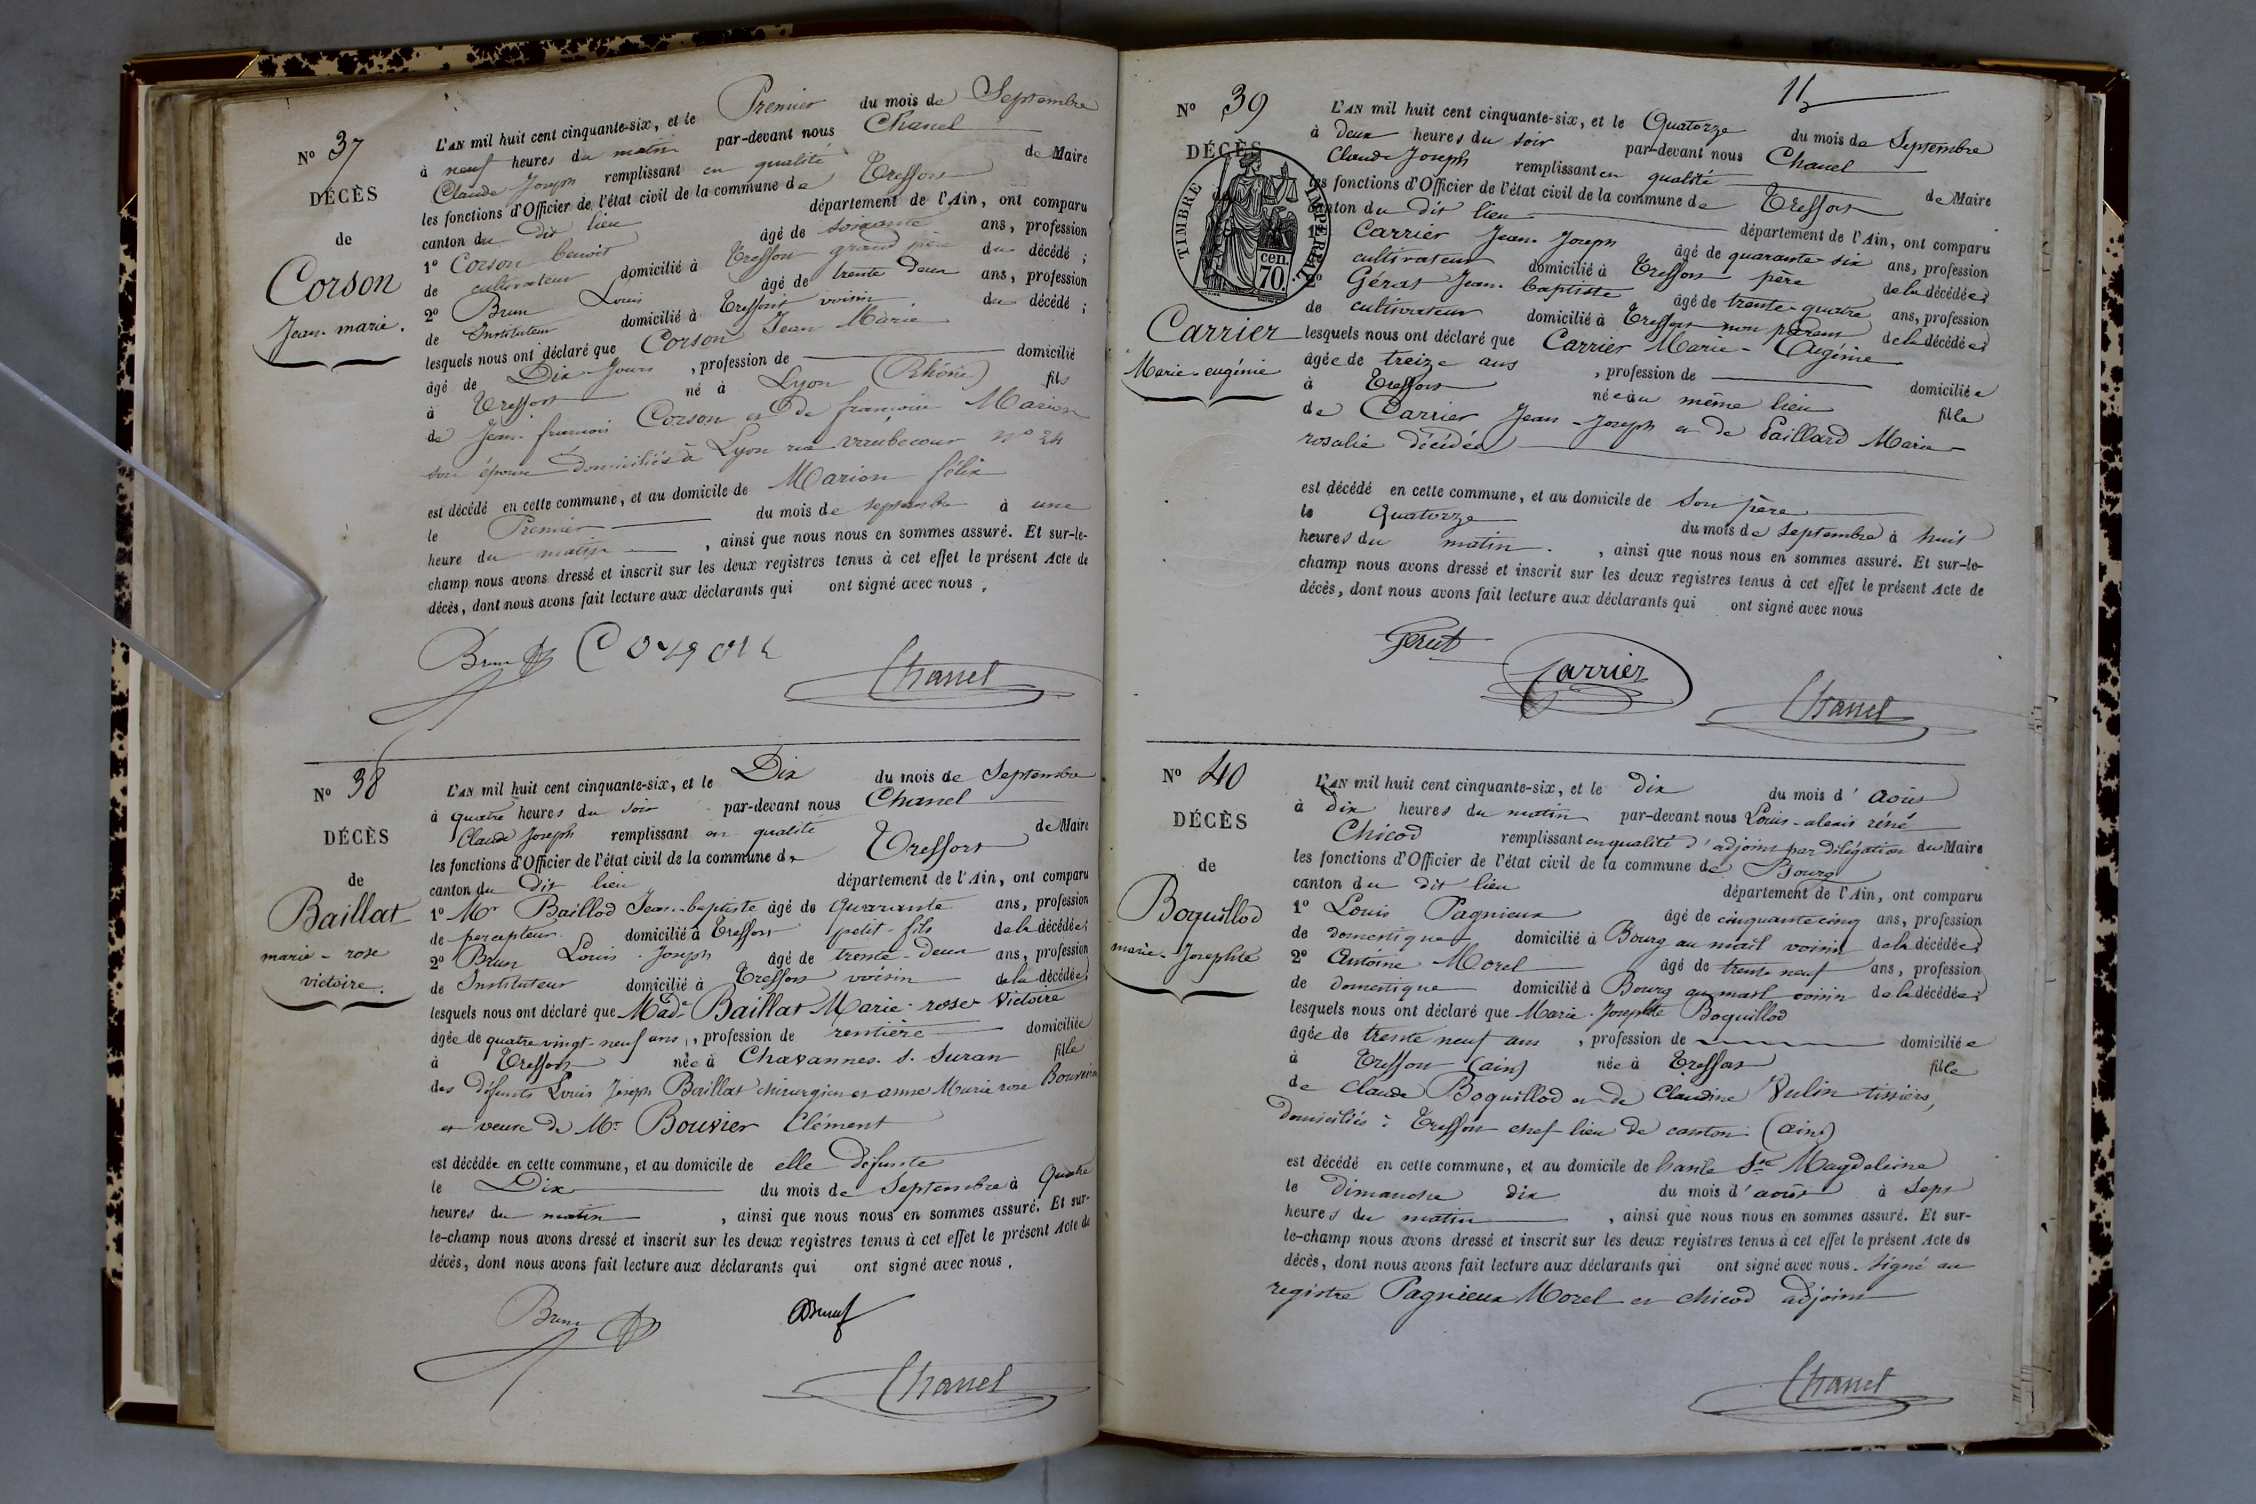 N° 37
DÉCÈS
de
Corson
Jean-marie.
L'AN mil huit cent cinquante-six, et le Premier du mois de Septembre
à neuf heures du matin par-devant nous Chanel
Claude Joseph remplissant en qualité de Maire
les fonctions d'Officier de l'état civil de la commune de Treffort
canton du dit lieu département de l'Ain, ont comparu
1° Corson benoit âgé de soixante ans, profession
de cultivateur domicilié à Treffort grand père du décédé ;
2° Brun Louis âgé de trente deux ans, profession
de Instituteur domicilié à Treffort voisin du décédé ;
lesquels nous ont déclaré que Corson Jean Marie
âgé de Dix Jours , profession de domicilié
à Treffort né à Lyon (Rhône) fils
de Jean-francois Corson et de francoise Marion
son épouse domiciliés à Lyon rue vaubecour N° 24
est décédé en cette commune, et au domicile de Marion félix
le Premier du mois de septembre à une
heure du matin , ainsi que nous nous en sommes assuré. Et sur-le-
champ nous avons dressé et inscrit sur les deux registres tenus à cet effet le présent Acte de
décès, dont nous avons fait lecture aux déclarants qui ont signé avec nous.
Brun Corson
Chanel
N° 38
DÉCÈS
de
Baillat
marie-rose
victoire.
L'AN mil huit cent cinquante-six, et le Dix du mois de Septembre
à quatre heures du soir par-devant nous Chanel
Claude Joseph remplissant en qualité de Maire
les fonctions d'Officier de l'état civil de la commune de Treffort
canton du dit lieu département de l'Ain, ont comparu
1° Mr Baillod Jean-baptiste âgé de Quarante ans, profession
de percepteur domicilié à Treffort petit-fils de la décédée ;
2° Brun Louis-Joseph âgé de trente-deux ans, profession
de Instituteur domicilié à Treffort voisin de la décédée ;
lesquels nous ont déclaré que Made Baillat Marie-rose Victoire
âgée de quatre vingt-neuf ans, profession de rentière domiciliée
à Treffort née à Chavannes-s-Suran fille
des défunts Louis Joseph Baillat chirurgien et anne Marie rose Bouvier
et veuve de Mr Bouvier Clément
est décédée en cette commune, et au domicile de elle défunte
le Dix du mois de Septembre à Quatre
heures du matin , ainsi que nous nous en sommes assuré. Et sur-
le-champ nous avons dressé et inscrit sur les deux registres tenus à cet effet le présent Acte de
décès, dont nous avons fait lecture aux déclarants qui ont signé avec nous.
Brun
Chanel
15
N° 39
DÉCÈS
TIMBRE IMPÉRIAL
70 cen.
Carrier
Marie-eugénie
L'AN mil huit cent cinquante-six, et le Quatorze du mois de Septembre
à deux heures du soir par-devant nous Chanel
Claude Joseph remplissant en qualité de Maire
les fonctions d'Officier de l'état civil de la commune de Treffort
canton du dit lieu département de l'Ain, ont comparu
1° Carrier Jean-Joseph âgé de quarante-six ans, profession
cultivateur domicilié à Treffort père de la décédée ;
2° Gérut Jean-baptiste âgé de trente-quatre ans, profession
de cultivateur domicilié à Treffort non parent de la décédée ;
lesquels nous ont déclaré que Carrier Marie-Eugénie
âgée de treize ans , profession de domiciliée
à Treffort née au même lieu fille
de Carrier Jean-Joseph et de Paillard Marie-
rosalie décédée
est décédé en cette commune, et au domicile de son père
le Quatorze du mois de Septembre à huit
heures du matin. , ainsi que nous nous en sommes assuré. Et sur-le-
champ nous avons dressé et inscrit sur les deux registres tenus à cet effet le présent Acte de
décès, dont nous avons fait lecture aux déclarants qui ont signé avec nous
Gerut
Carrier
Chanel
N° 40
DÉCÈS
de
Boquillod
marie-Josephte
L'AN mil huit cent cinquante-six, et le dix du mois d'août
à Dix heures du matin par-devant nous Louis-alexis réné
Chicod remplissant en qualité d'adjoint par délégation du Maire
les fonctions d'Officier de l'état civil de la commune de Bourg
canton du dit lieu département de l'Ain, ont comparu
1° Louis Pagnieux âgé de cinquante cinq ans, profession
de domestique domicilié à Bourg au mail voisin de la décédée ;
2° Antoine Morel âgé de trente neuf ans, profession
de domestique domicilié à Bourg au mail voisin de la décédée ;
lesquels nous ont déclaré que Marie-Josephte Boquillod
âgée de trente neuf ans , profession de domiciliée
à Treffort (ain) née à Treffort fille
de Claude Boquillod et de Claudine Vulin tissiers,
domiciliés à Treffort chef lieu de canton (ain)
est décédé en cette commune, et au domicile de Ste Magdeleine
le dimanche dix du mois d'août à Sept
heures du matin , ainsi que nous nous en sommes assuré. Et sur-
le-champ nous avons dressé et inscrit sur les deux registres tenus à cet effet le présent Acte de
décès, dont nous avons fait lecture aux déclarants qui ont signé avec nous. Signé au
registre Pagnieux Morel et chicod adjoint
Chanel